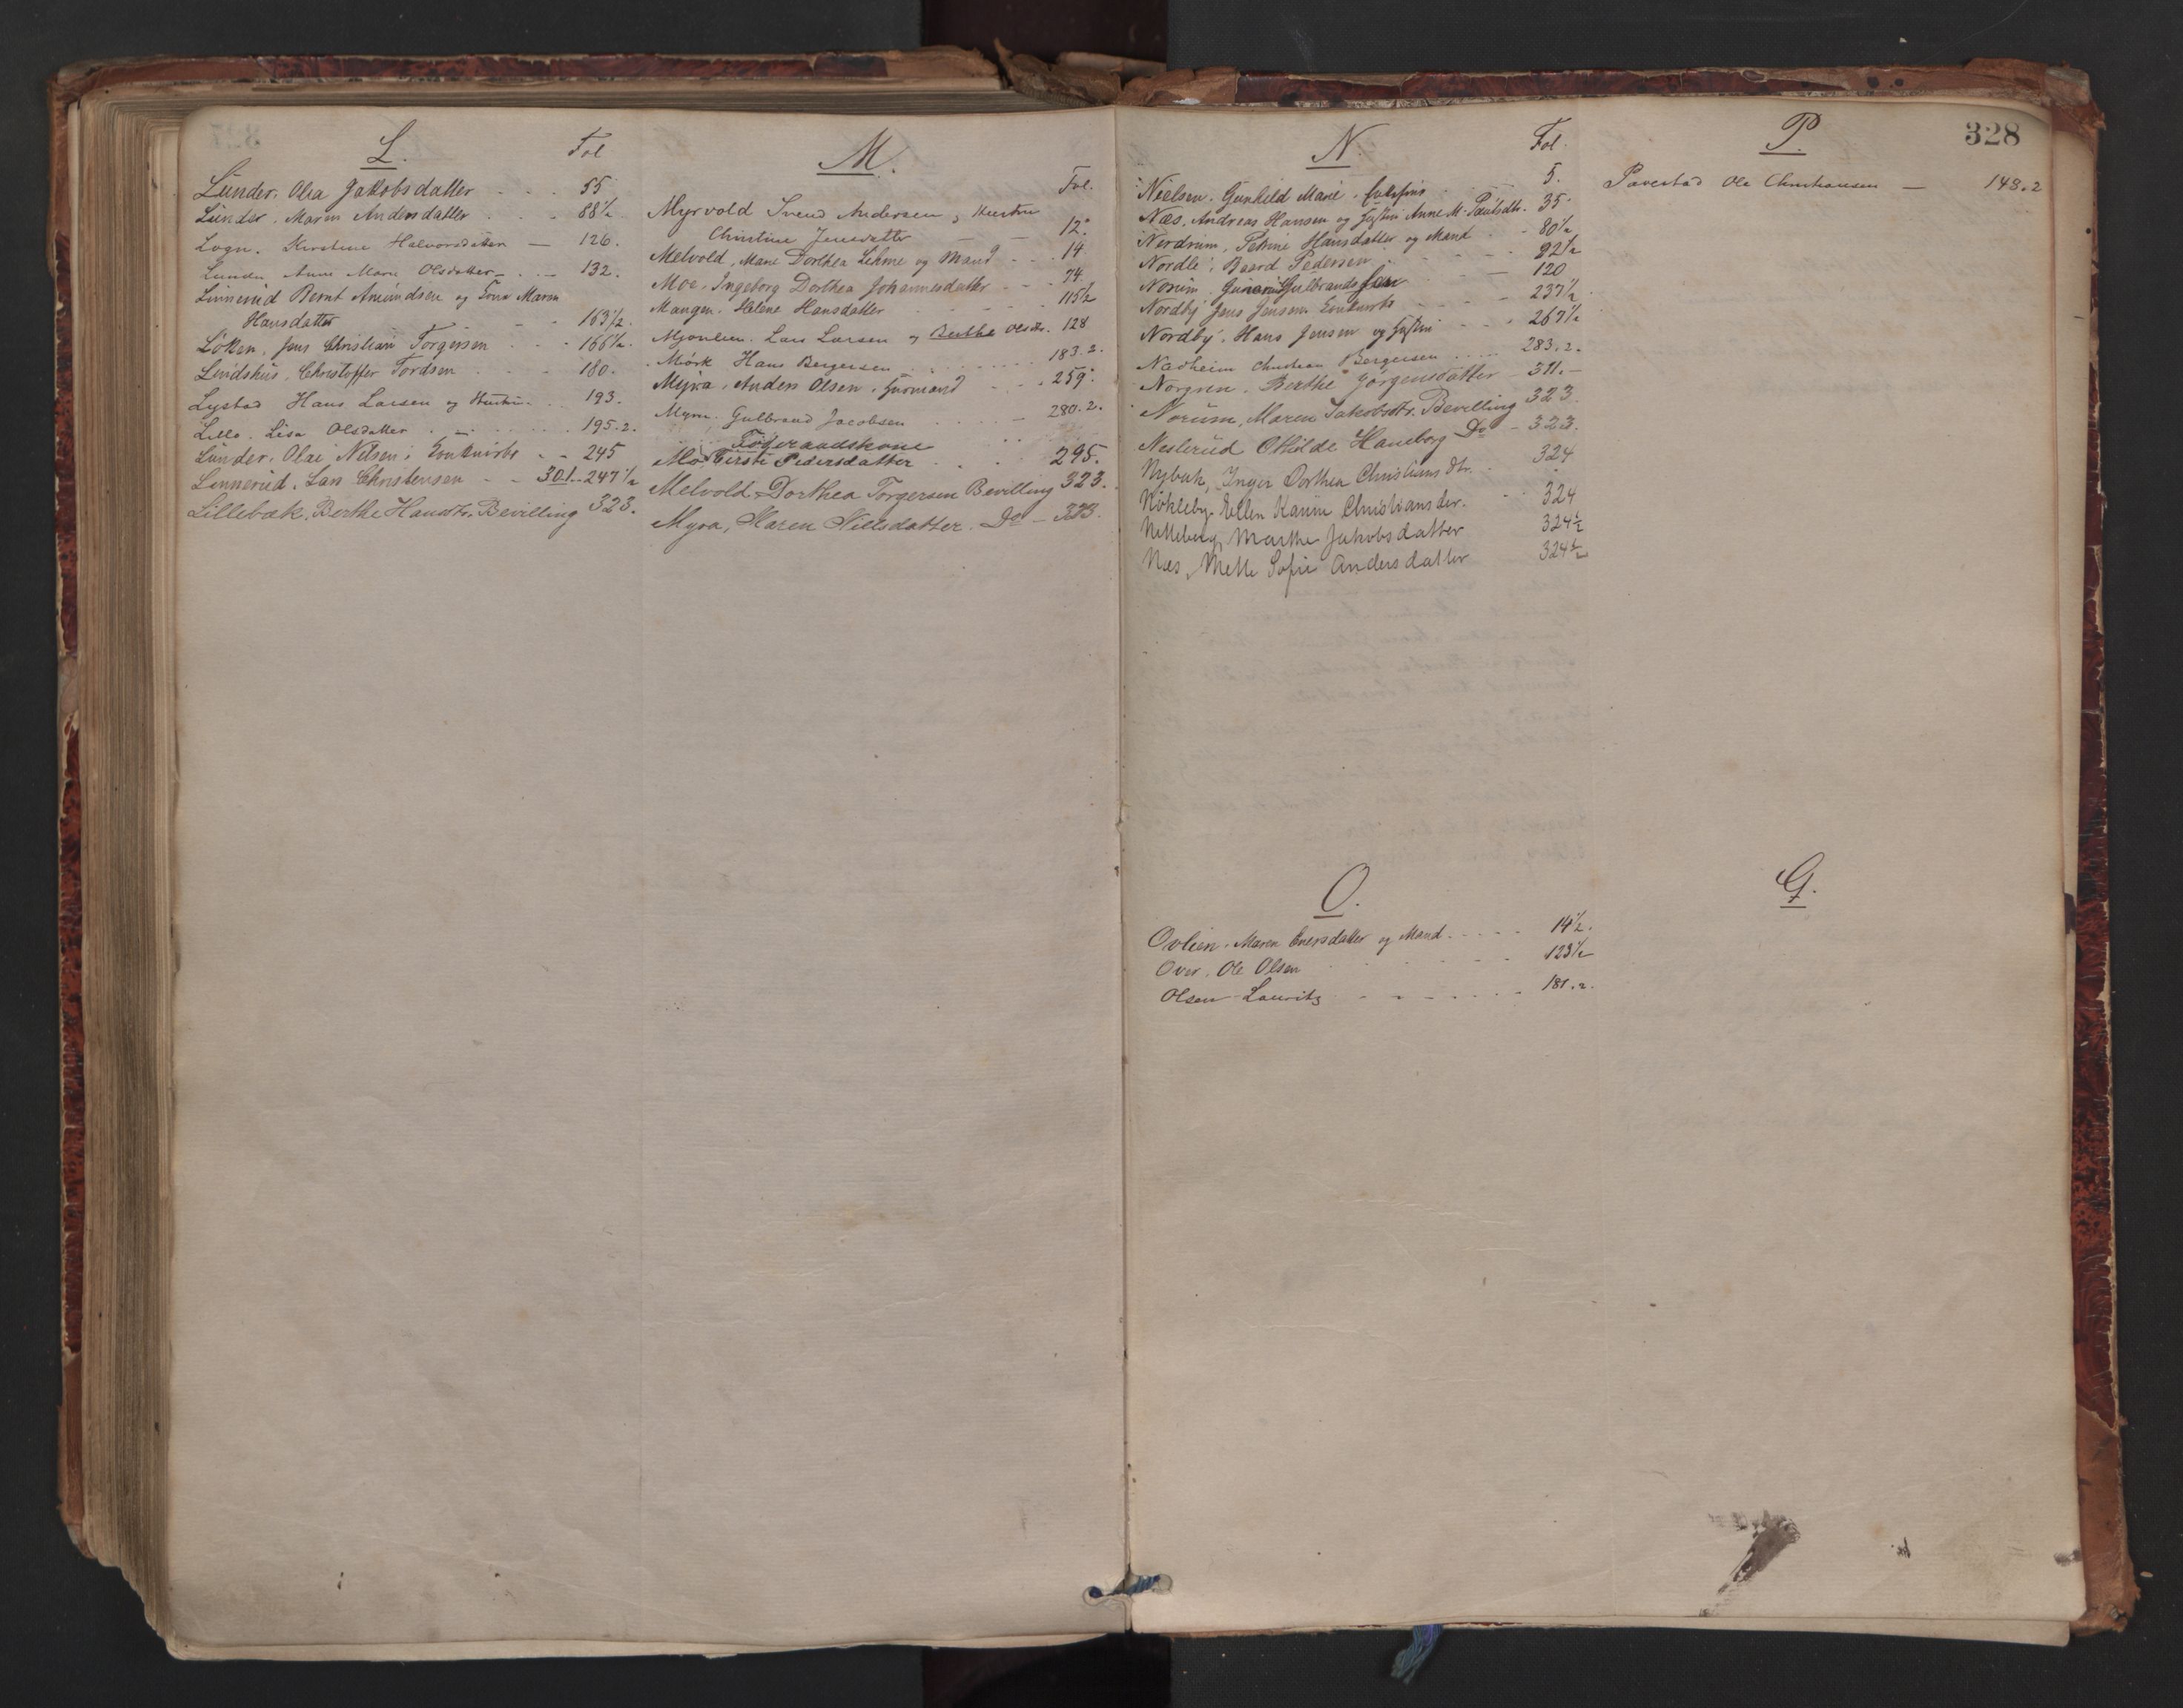 L.
Fol
Lunder, Olea Jakobsdatter - - - 55
Lunder, Maren Andersdatter - - - 88½
Logn. Kirstine Halvorsdatter — 126.
Lunder Anne Marie Olsdatter - . - 132.
Linnerud Bernt Amundsen og Kone Maren
Hansdatter - - 163½.
Löken, Jens Christian Torgersen - - - 166½.
Lindshus, Christoffer Tordsen - - - 180.
Lystad Hans Larsen og Hustru - . . 193.
Lillo. Lisa Olsdatter . - . . . . . 195.2.
Lunder, Olai Nilsen, Enkmrbs - - 245
Linnerud, Lars Christensen - - 301 - 247½
Lillebæk, Berthe Hansdtr. Bevilling 323.
M.
Fol.
Myrvold Svend Andersen og Hustru
Christine Jensdatter — — 12.
Melvold, Marie Dorthea Lehne og Mand - - - 14
Moe, Ingeborg Dorthea Johannesdatter - - - 74
Mangen. Helene Hansdatter - - - 115½
Mjonlien. Lars Larsen og Berthe Olsdtr. 128
Mörk Hans Bergersen . . . . . . . 183.2.
Myra, Anders Olsen, Gusmand - - - 259.
Myra. Gulbrand Jacobsen . . . . . - 280.2.
Föderaadskone
Mo, Kirsti Pedersdatter . . . 295.
Melvold, Dorthea Torgersen Bevilling 323.
Myra, Karen Nilsdatter. Do - 323.
N.
Fol.
Nielsen, Gunhild Marie, - - - 5.
Næs, Andreas Hansen og Hustru Anne M. Paulsdtr. 35.
Nerdrum, Petrine Hansdatter og Mand - - 80½
Nordli, Baard Pedersen - - - - - 92½
Norum, Gulbrandsen - - 120
Nordby Jens Jensens Enkmrbs - - - 237½
Nordby, Hans Jensen og Hustru - - - 267½
Nadheim Christian Bergersen ..... 283.2.
Norgren. Berthe Jörgensdatter - 311.-
Norum, Maren Jakobsdtr. Bevilling 323.
Neslerud Othilde Haneborg Do - 323.
Nybak, Inger Dorthea Christiansdtr. . 324
Nökleby, Ellen Karine Christiansdtr. - - 324
Netteberg, Marthe Jakobsdatter 324½
Næs, Mette Sofie Andersdatter 324½
O.
Ovlien. Maren Eversdatter og Mand. - - - - 14½.
Over, Ole Olsen - - - - - - 123½
Olsen Lauritz - - - - - - 181.2.
P.
328
Pavestad Ole Christiansen — 148.2
Q.